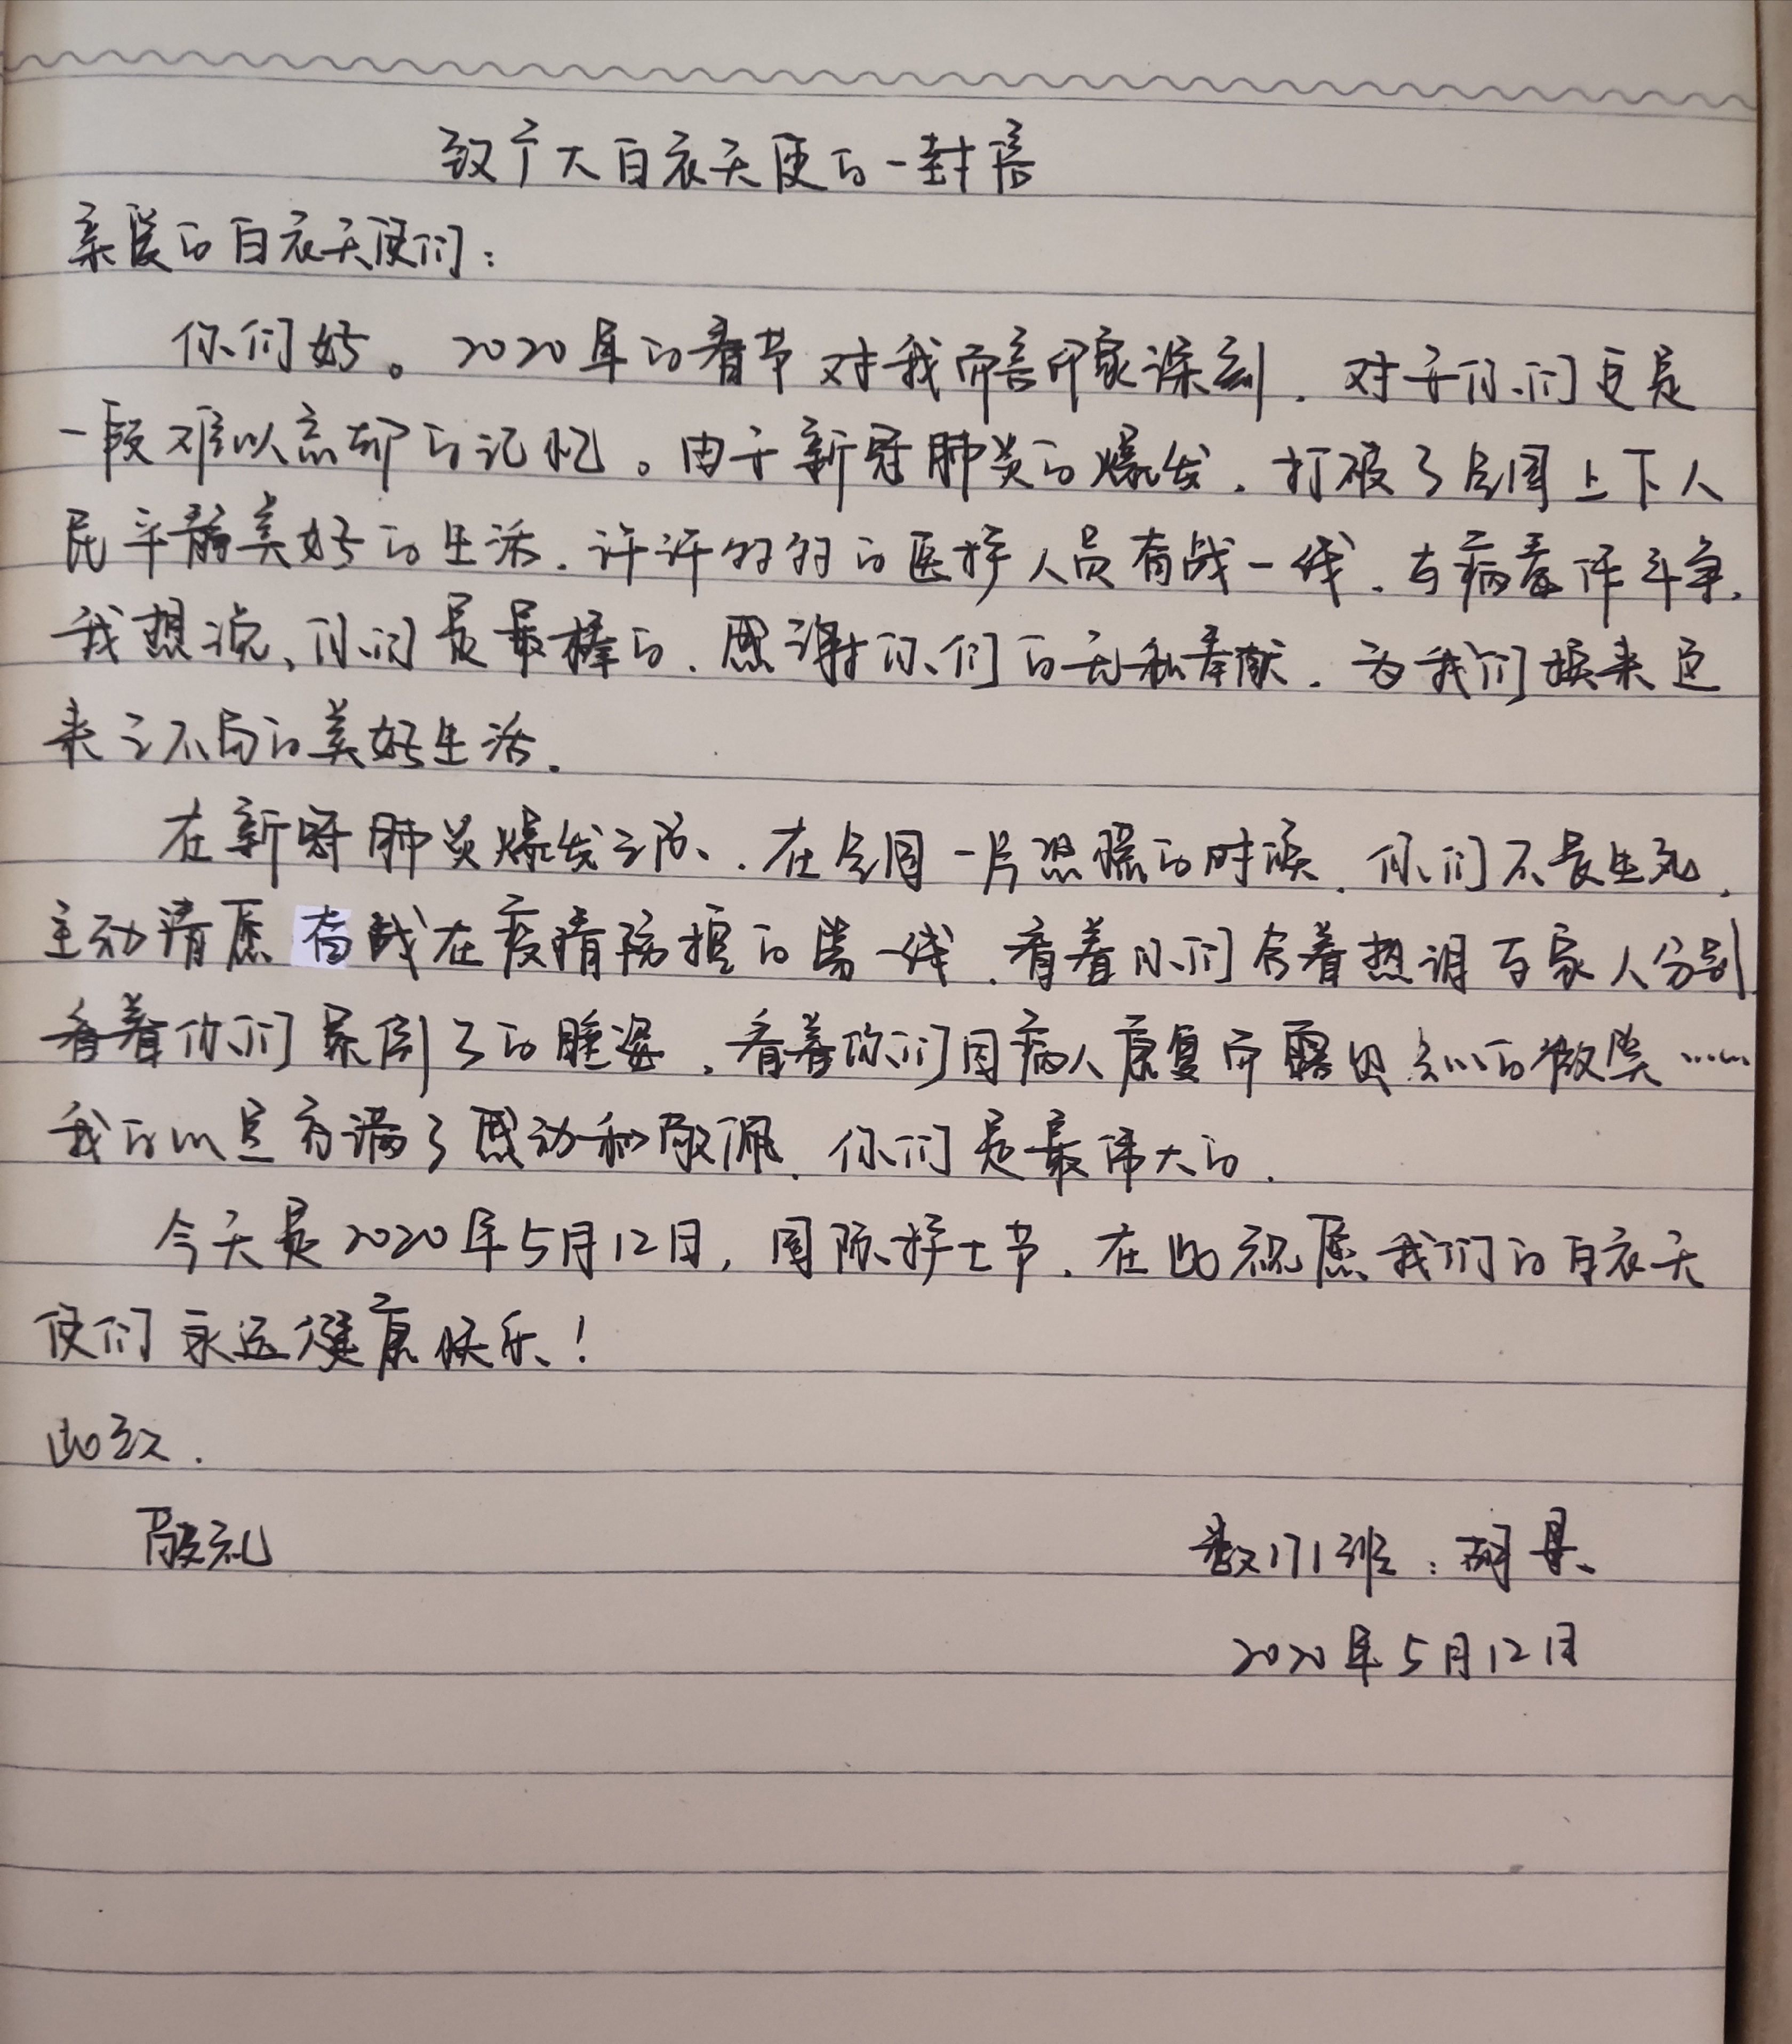 致广大白衣天使的一封信
亲爱的白衣天使们：
你们好。2020年的春节对我而言印象深刻，对于你们更是
一段难以忘却的记忆。由于新冠肺炎的爆发，打破了全国上下人
民平静美好的生活，许许多多的医护人员奋战一线，与病毒作斗争，
我想说，你们是最棒的，感谢你们的无私奉献，为我们换来这
来之不易的美好生活。
在新冠肺炎爆发之际，在全国一片恐慌的时候，你们不畏生死，
主动请愿奋战在疫情防控的第一线，看着你们含着热泪与家人分别
看着你们累倒了的睡姿，看着你们因病人康复而露出知心的微笑……
我的心里充满了感动和敬佩，你们是最伟大的。
今天是2020年5月12日，国际护士节，在此祝愿我们的白衣天
使们永远健康快乐！
此致.
敬礼
数171班：胡丹
2020年5月12日